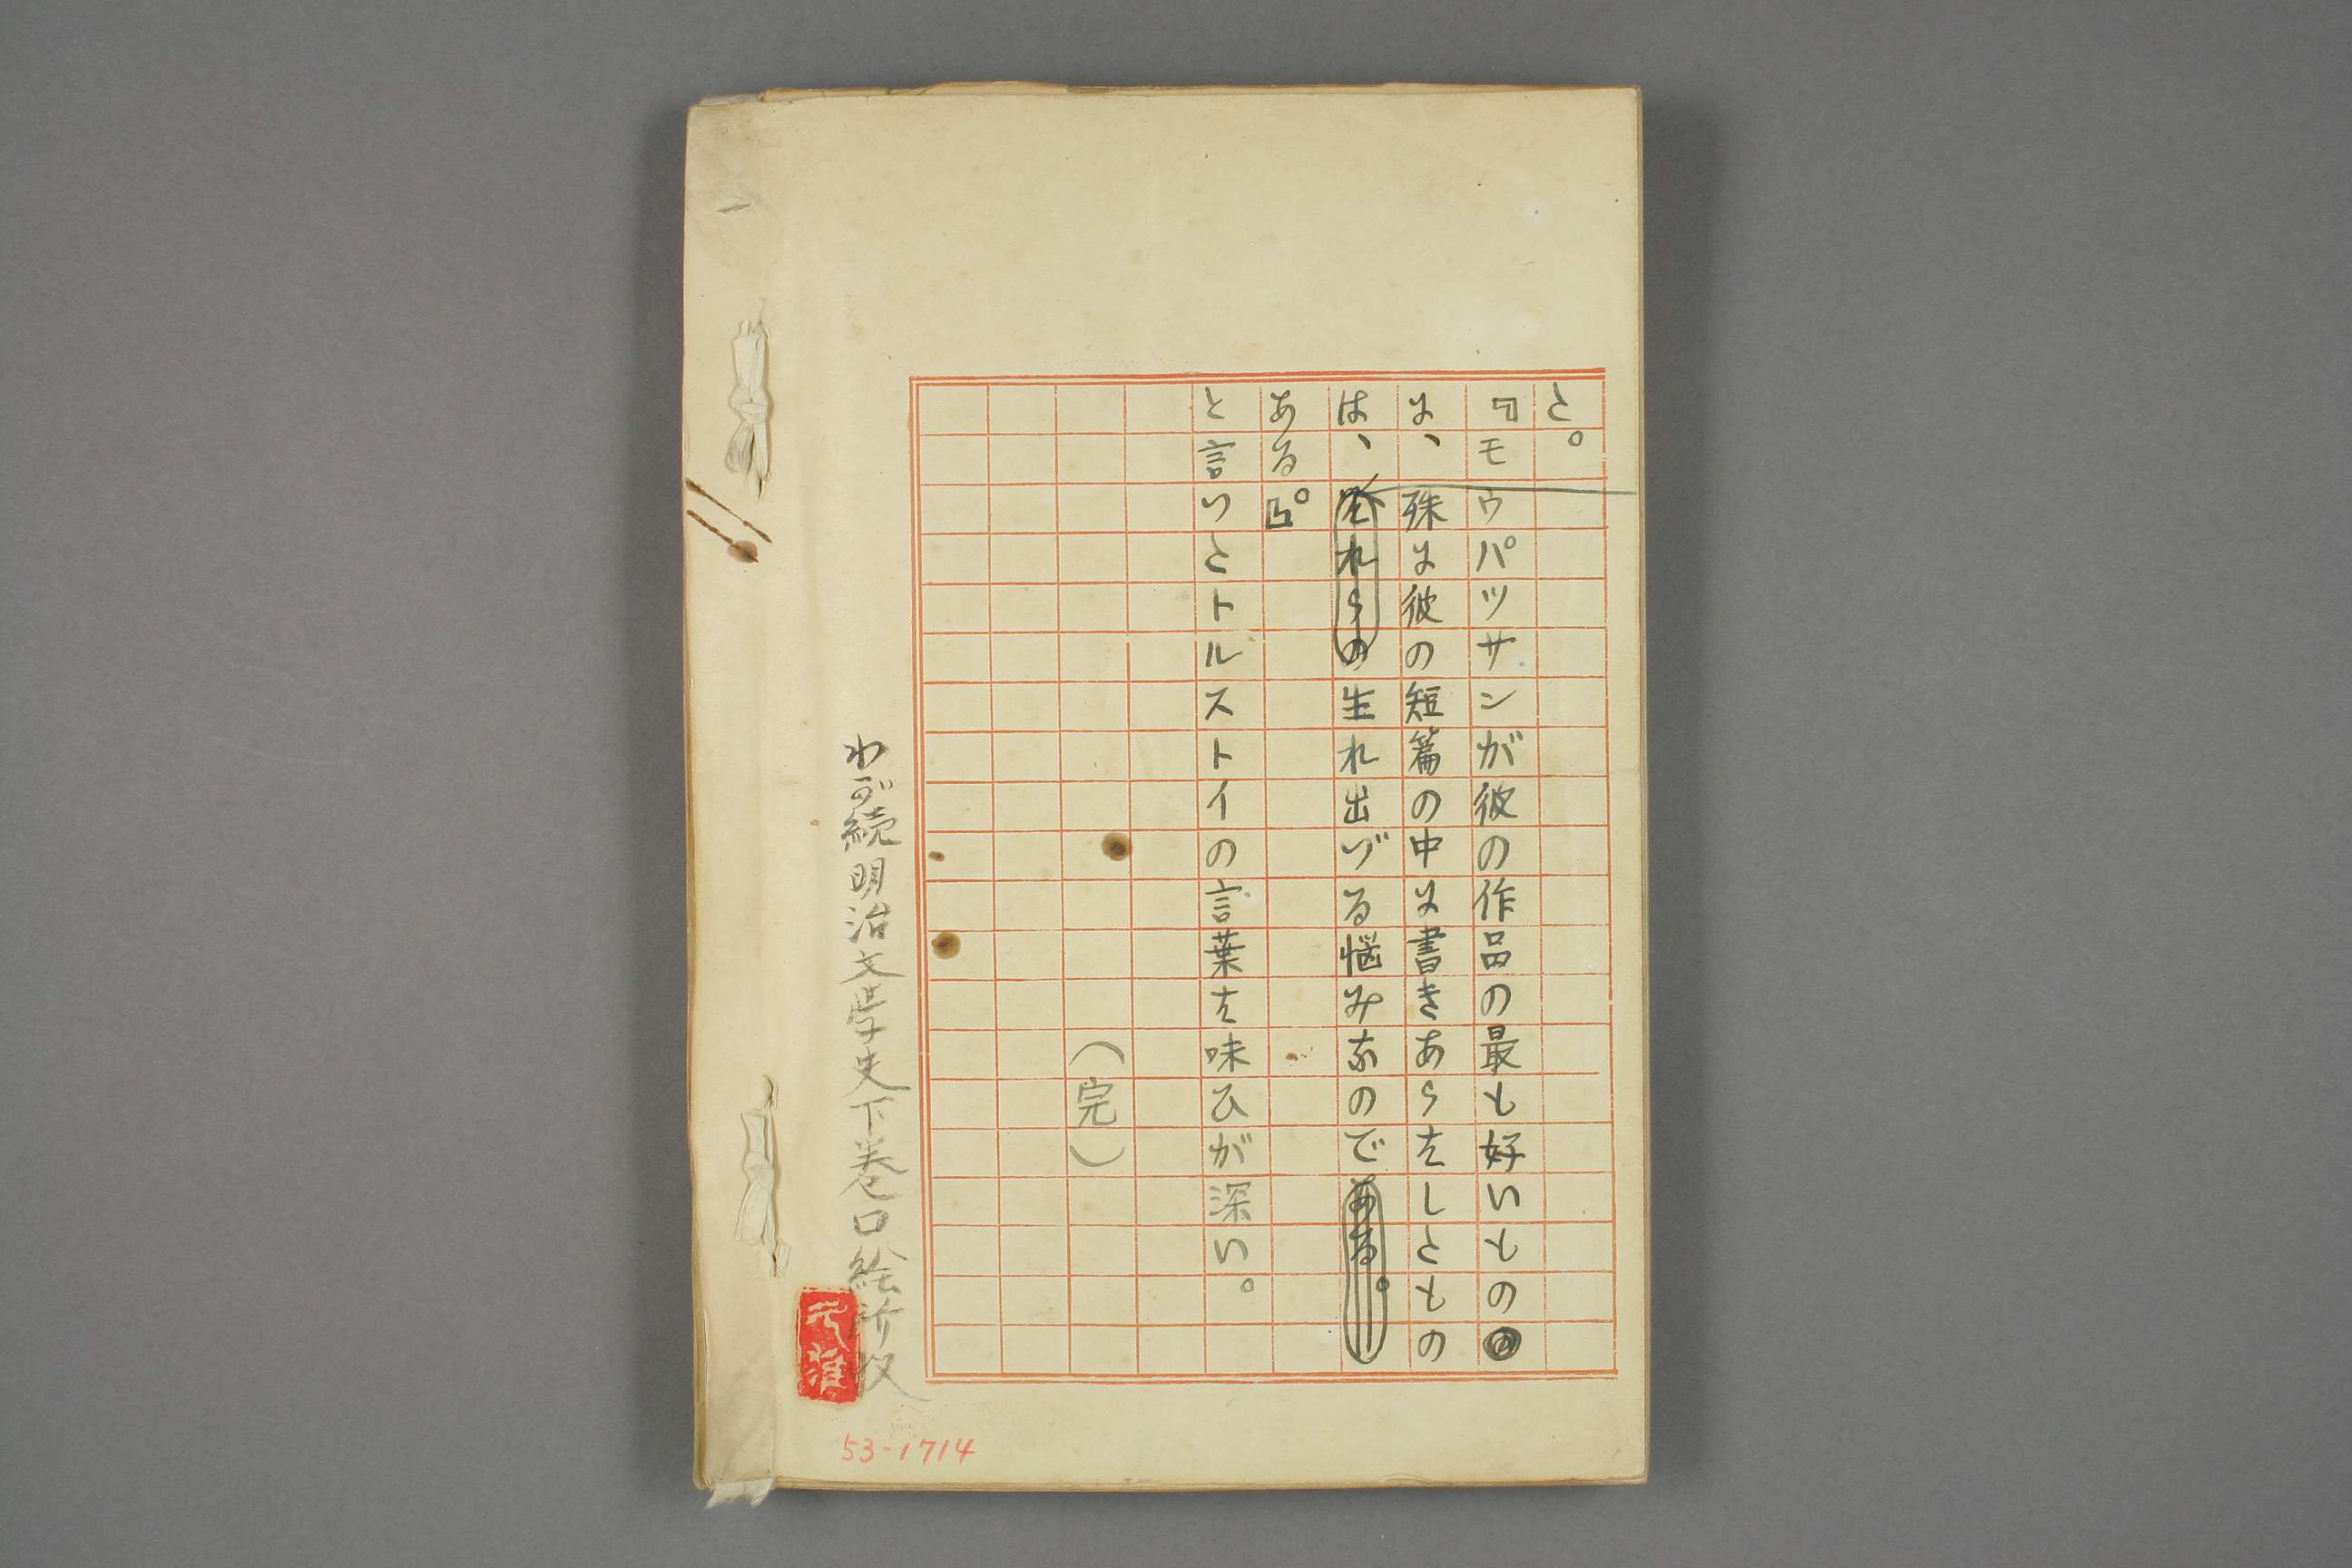 た。
『モウパツサンが彼の作品の最も好いもの
に、殊に彼の短篇の中に書きあらはしたもの
は、それらの生れ出づる悩みなのである。
ある。』
と言つたトルストイの言葉は味ひが深い。
（完）
わが続明治文学史下巻口絵所収
53-1714